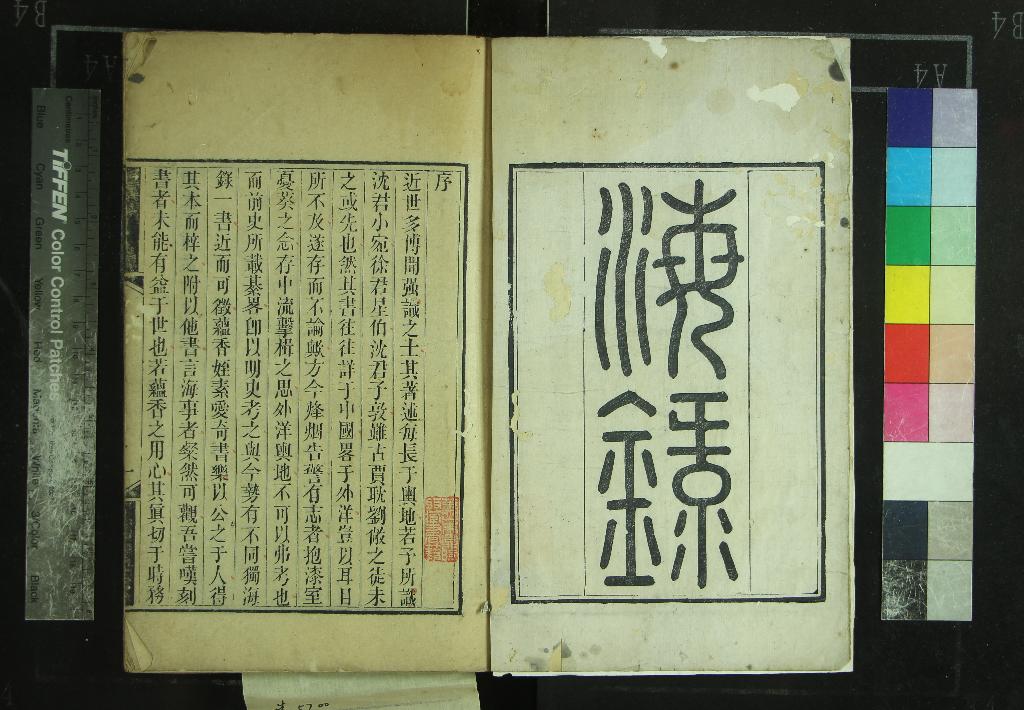 海錄
序
近世多博聞强識之士其著述每長于輿地若予所識
沈君小宛徐君星伯沈君子敦雖古賈耽劉敞之徒未
之或先也然其書往往詳于中國畧于外洋豈以耳目
所不及遂存而不論歟方今烽烟告警有志者抱漆室
憂葵之念存中流擊楫之思外洋輿地不可以弗考也
而前史所載綦畧卽以明史考之與今勢有不同獨海
錄一書近而可徵蘊香姪素愛奇書樂以公之于人得
其本而梓之附以他書言海事者粲然可觀吾嘗嘆刻
書者未能有益于世也若蘊香之用心其眞切于時務
TIFFEN Color Control Patches
Centimetres
Blue
Cyan
Green
Yellow
Red
Magenta
White
3/Color
Black
A4
A4
B4
B4